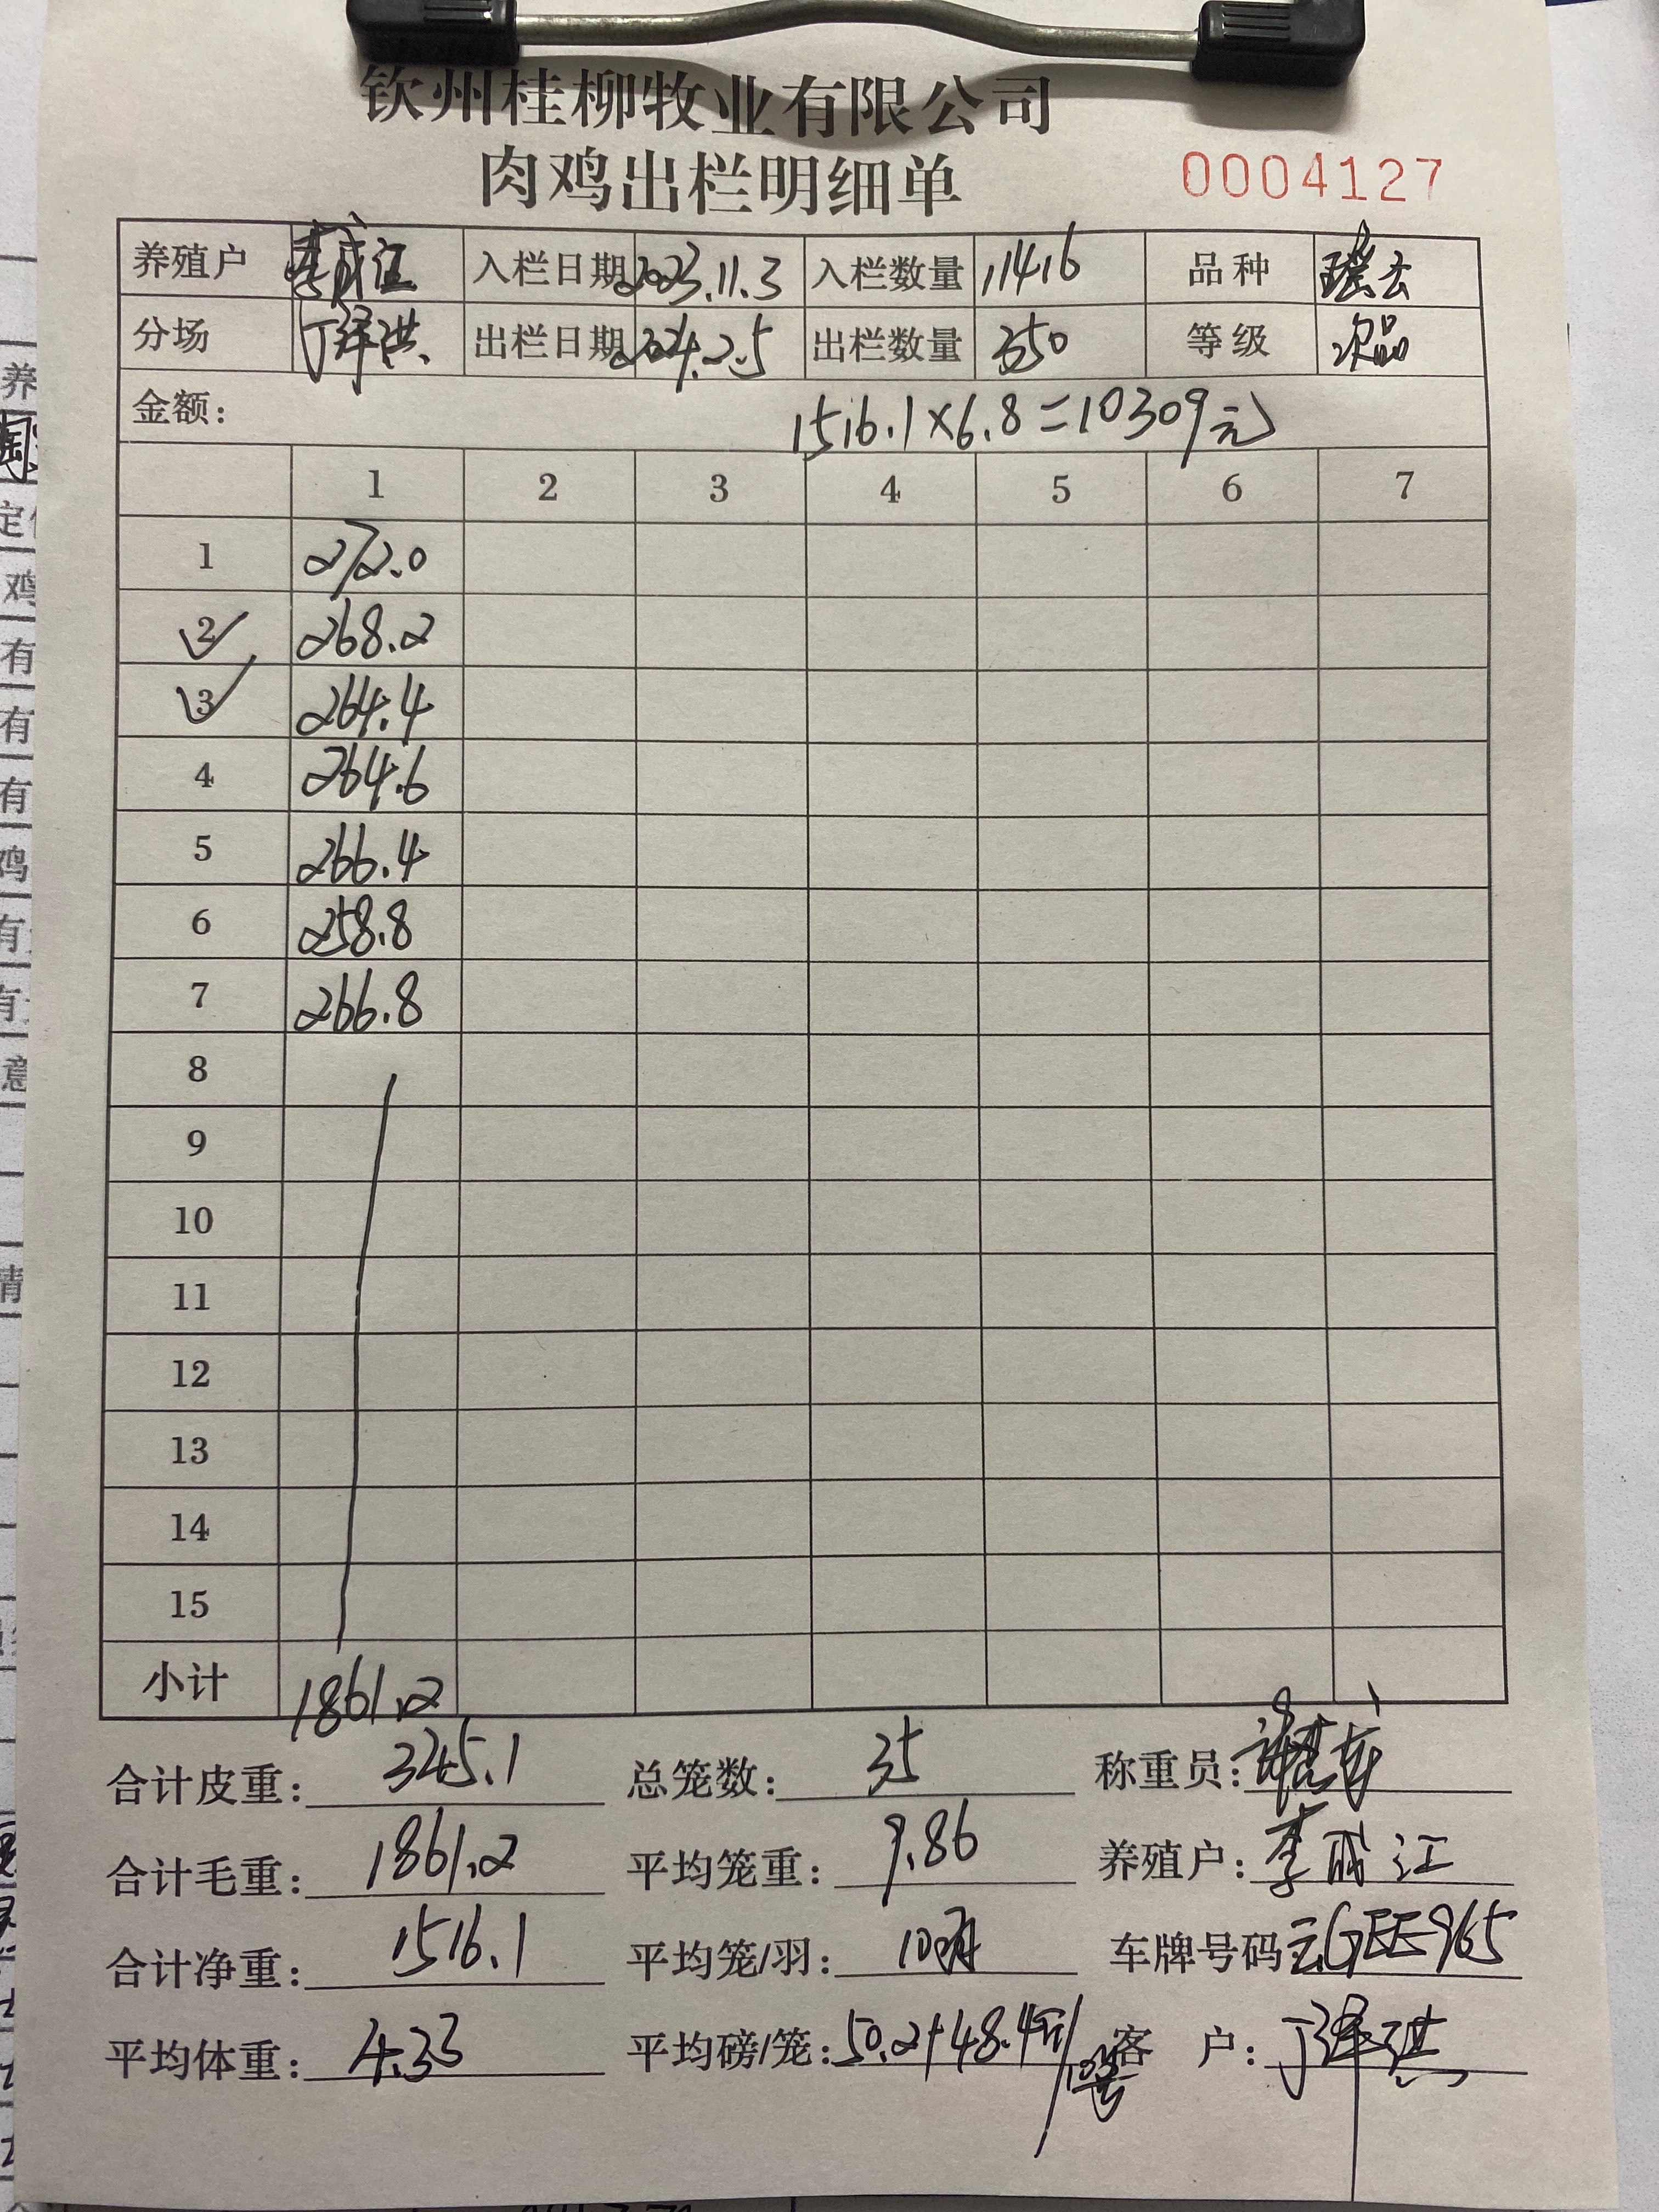 钦州桂柳牧业有限公司
肉鸡出栏明细单 0004127
养殖户 李成江 入栏日期 2023.11.3 入栏数量 11416 品种 瑶
分场 丁泽洪 出栏日期 2024.2.5 出栏数量 350 等级 次品
金额: 1516.1×6.8=10309元
1 2 3 4 5 6 7
1 272.0
2 268.2
3 264.4
4 264.6
5 266.4
6 258.8
7 266.8
8
9
10
11
12
13
14
15
小计 1861.2
合计皮重: 345.1 总笼数: 35 称重员:
合计毛重: 1861.2 平均笼重: 9.86 养殖户: 李成江
合计净重: 1516.1 平均笼/羽: 10 车牌号码 云GEE965
平均体重: 4.33 平均磅/笼: 50.2+48.4 客 户: